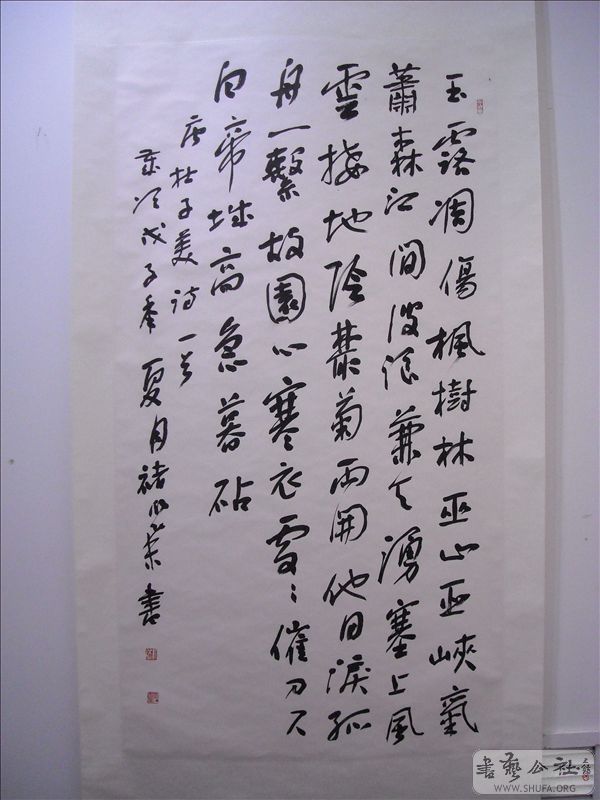 玉露凋傷楓樹林巫山巫峽氣
蕭森江間波浪兼天湧塞上風
雲接地陰叢菊兩開他日淚孤
舟一繫故園心寒衣處々催刀尺
白帝城高急暮砧
唐杜子美诗一首
歲次戊子秊夏月褚書
書藝公社
WWW.SHUFA.ORG